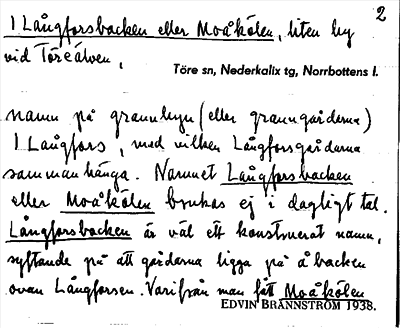 2
1 Långforsbacken eller Moåkölen, liten by
vid Töreälven,
Töre sn, Nederkalix tg, Norrbottens l.
namn på grannbyn (eller granngårdarna)
1 Långfors, med vilken Långforsgårdarna
sammanhänga. Namnet Långforsbacken
eller Moåkölen brukas ej i dagligt tal.
Långforsbacken är väl ett konstruerat namn,
syftande på att gårdarna ligga på åbacken
ovan Långforsen. Varifrån man fått Moåkölen
EDVIN BRÄNNSTRÖM 1938.